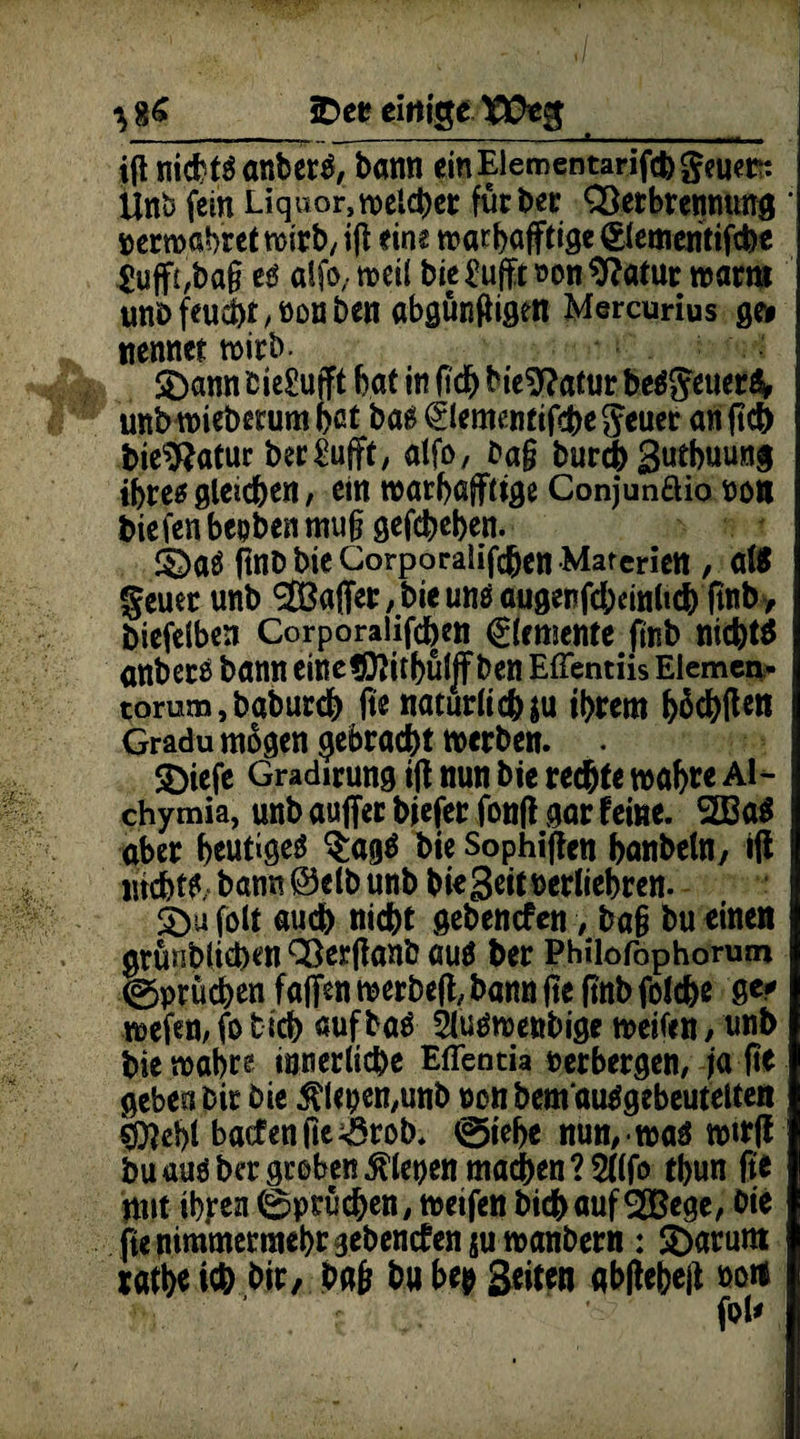 186 Der einige Weg
ist nichts anders, dann ein Elementarisch Feuer:
Und sein Liquor, welcher für der Verbrennung
verwahret wird, ist eine warhafftige Elementische
Lufft, daß es also, weil die Lufft von Natur warm
und feucht, von den abgünstigen Mercurius ge-
nennet wird.
Dann die Lufft hat in sich die Natur des Feuers,
und wiederum hat das Elementische Feuer an sich
die Natur der Lufft, also, daß durch Zuthuung
ihres gleichen, ein warhafftige Conjunctio von
diesen beyden muß geschehen.
Das sind die Corporalischen Materien, als
Feuer und Wasser, die uns augenscheinlich sind,
dieselben Corporalischen Elemente sind nichts
anders dann eine Mithülff den Essentiis Elemen-
torum, dadurch sie natürlich zu ihrem höchsten
Gradu mögen gebracht werden.
Diese Gradirung ist nun die rechte wahre Al-
chymia, und ausser dieser sonst gar keine. Was
aber heutiges Tags die Sophisten handeln, ist
nichts, dann Geld und die Zeit verliehren.
Du solt auch nicht gedencken, daß du einen
gründlichen Verstand aus der Philosophorum
Sprüchen fassen werdest, dann sie sind solche ge-
wesen, so dich auf das Auswendige weisen, und
die wahre innerliche Essentia verbergen, ja sie
geben dir die Kleyen, und von dem ausgebeutelten
Mehl backen sie Brod. Siehe nun, was wirst
du aus der groben Kleyen machen? Also thun sie
mit ihren Sprüchen, weisen dich auf Wege, die
sie nimmermehr gedencken zu wandern: Darum
rathe ich dir, daß du bey Zeiten abstehest von
sol-